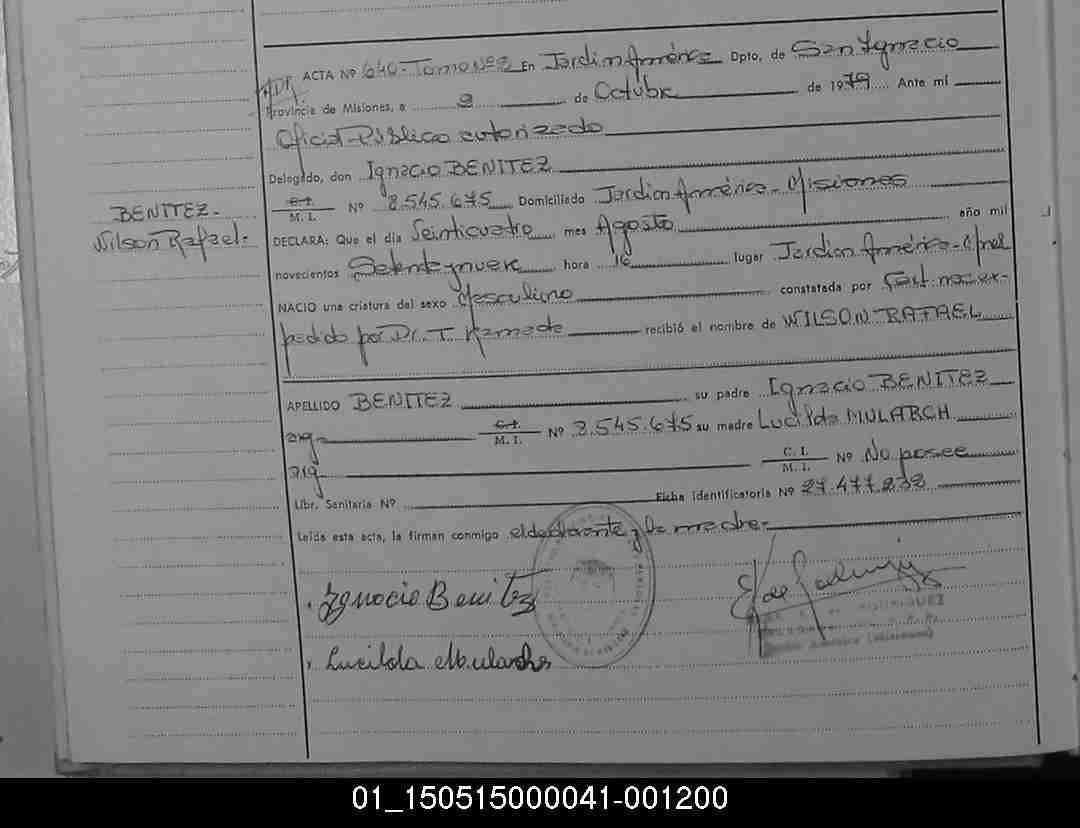 ACTA Nº 640-Tomo Nº2 En Jardin América Dpto. de San Ignacio
Provincia de Misiones, a 9 de Octubre de 1979 Ante mí
Oficial-Público autorizado
Delegado, don Ignacio BENITEZ
C.I. M.I. Nº 8.545.675 Domiciliado Jardin América - Misiones
BENITEZ-
Wilson Rafael-
DECLARA: Que el día Veinticuatro mes Agosto año mil
novecientos Setentaynueve hora 16 lugar Jardin América-
NACIO una criatura del sexo Masculino constatada por Cert. nac. ex-
pedido por Dr. T. Kamada recibió el nombre de WILSON RAFAEL
APELLIDO BENITEZ su padre Ignacio BENITEZ
arg- C.I. M.I. Nº 8.545.675 su madre Lucilda MULARCH
arg C.I. M.I. Nº No posee
Libr. Sanitaria Nº Ficha identificatoria Nº 27.477.232
Leída esta acta, la firman conmigo el declarante y la madre-
Ignacio Benitez
Lucilda
01_150515000041-001200